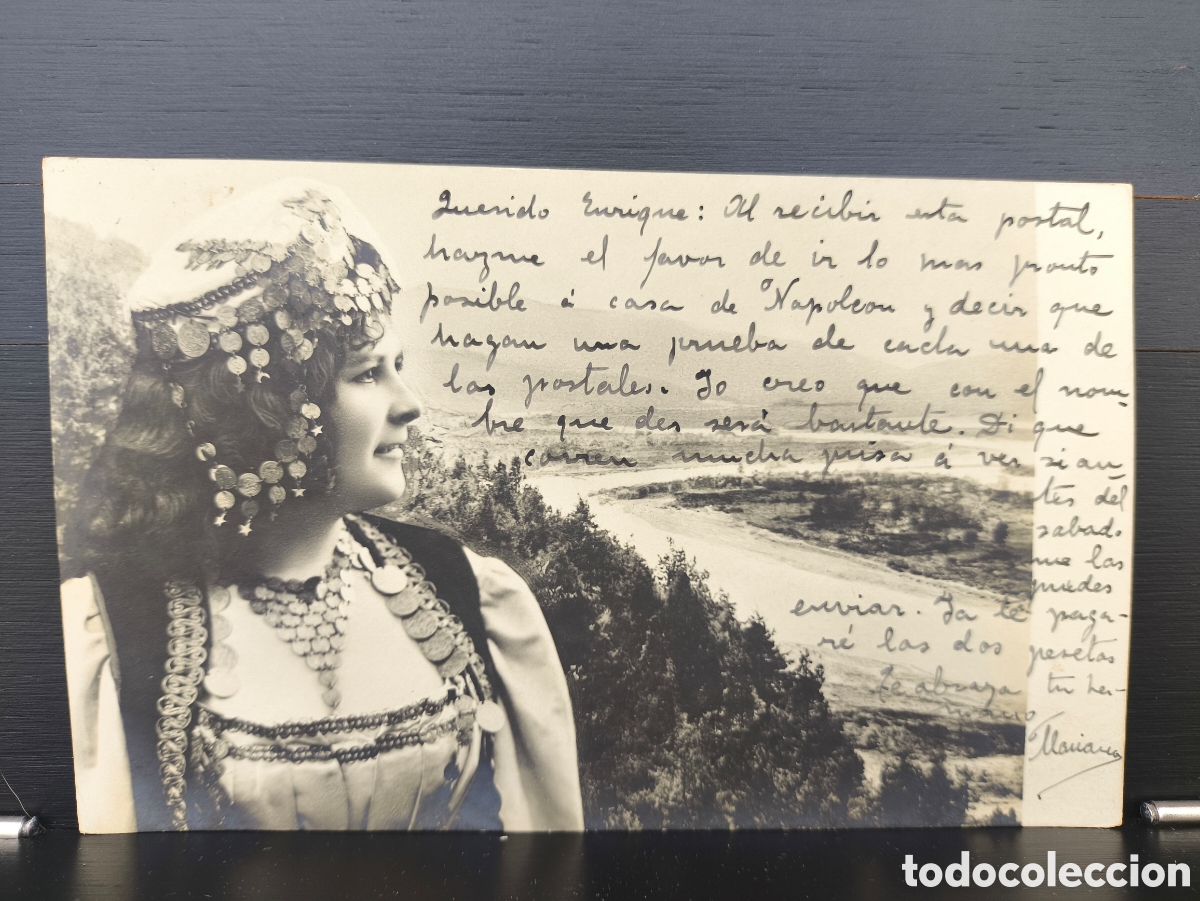 Querido Enrique: Al recibir esta postal,
hazme el favor de ir lo mas pronto
posible á casa de Napoleon y decir que
hagan una prueba de cada una de
las postales. Yo creo que con el nom-
bre que des será bastante. Di que
corren mucha prisa á ver si an-
tes del
sabado
me las
puedes
enviar. Ya te paga-
ré las dos pesetas
te abraza tu her-
mano
Mariano
todocoleccion